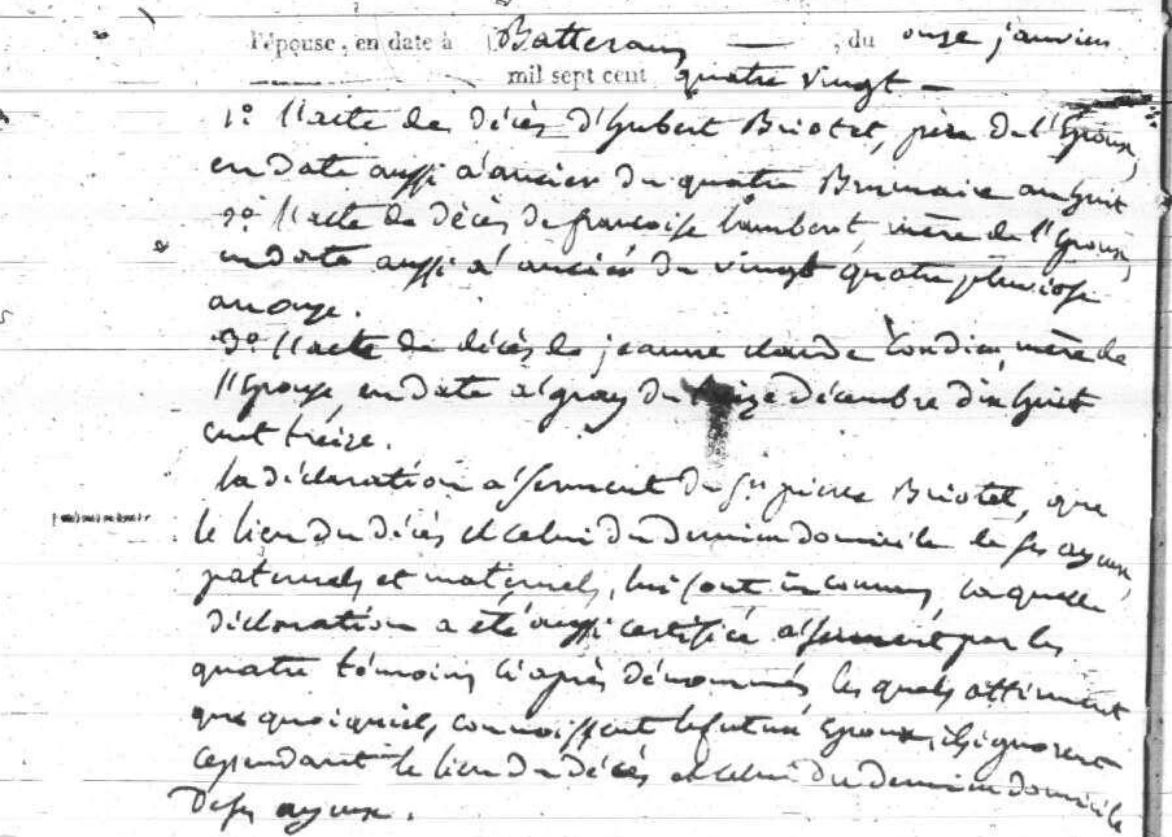 l'épouse, en date à Batterans — , du onze janvier
mil sept cent quatre vingt —
1° l'acte de décès d'hubert Briotet, père de l'Epoux,
en date aussi a'ancier du quatre Brumaire an huit
2° l'acte de décès de francoise lambert, mère de l'Epoux,
en date aussi a' ancier du vingt quatre pluviose
an onze.
3° l'acte de décès de jeanne claude mère de
l'Epouse, en date a' gray du treize décembre dix huit
cent treize.
la déclaration a' serment du Sr pierre Briotet, que
le lieu du décès et celui du dernier domicile de ses ayeux,
paternels et maternels, lui sont inconnus, laquelle
déclaration a été aussi certifiée a' serment par les
quatre témoins ci après dénommés, lesquels affirment
que quoiqu'ils connoissent le futur Epoux, ils ignorent
cependant le lieu du décès et celui du dernier domicile
de ses ayeux.